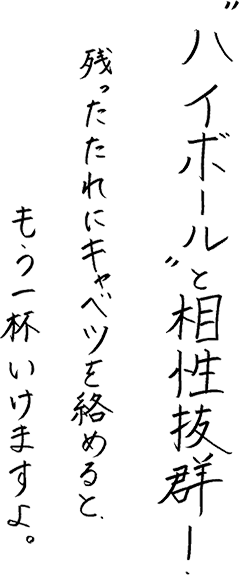 〝ハイボール〟と相性抜群！
残ったたれにキャベツを絡めると、
もう一杯いけますよ。